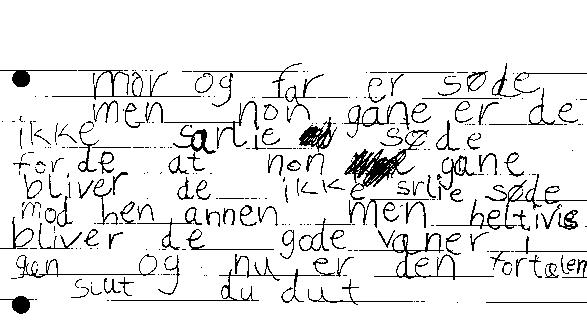 mor og far er søde
men non gane er de
ikke sarlie søde
for de at non gane
bliver de ikke srlie søde
mod hen annen men heltivis
bliver de gode vaner i
gæn og nu er den fortalen
slut du dut